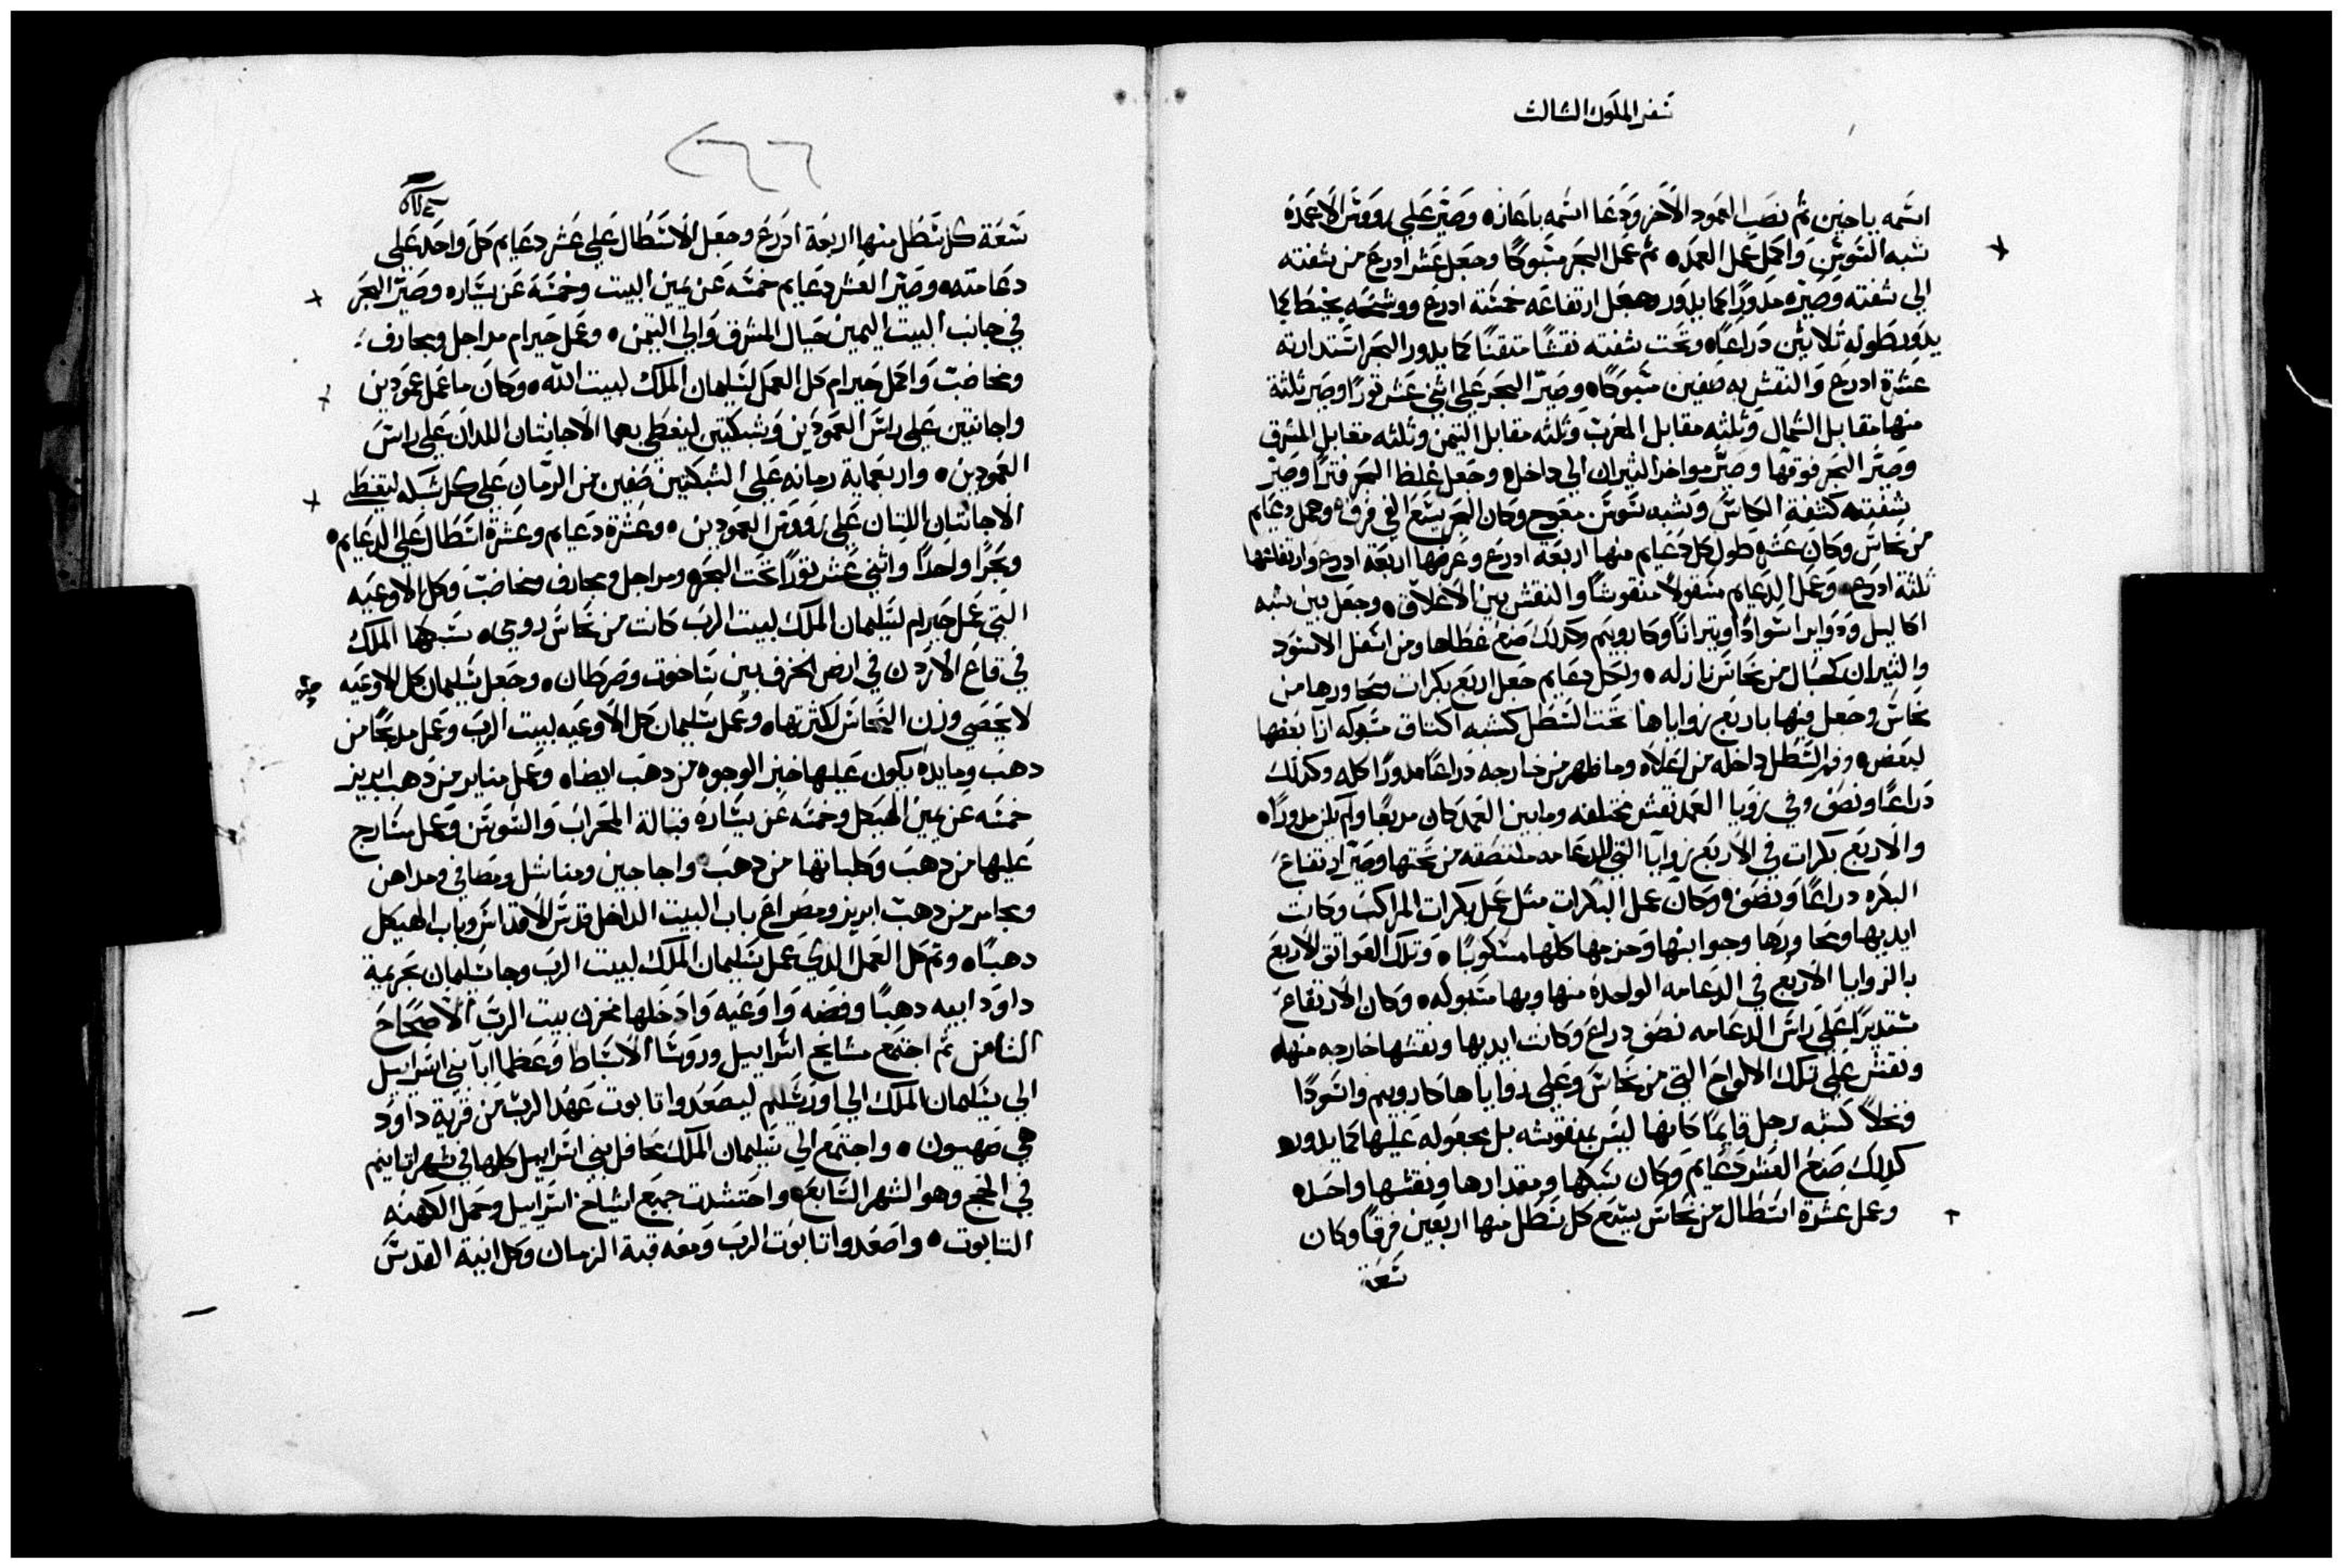 سفر الملوك الثالث
اسمه ياخين ثم نصب العمود الاخر ودعا اسمه باعاز وصير علي رووس الاعمدة
شبه السوسن واكمل عمل العمد ثم عمل البحر مسبوكا وجعل عشر ادرع من شفته
الي شفته وصيره مدورا كما يدور وجعل ارتفاعه خمسة ادرع ووشحه بخيط كما
يدور طوله ثلاثين دراعا وتحت شفته نقشا متقنا كما يدور البحر استدارته
عشرة ادرع والنقش به صفين مسبوكا وصير البحر علي اثني عشر ثورا وصير ثلثة
منها مقابل الشمال وثلثه مقابل المغرب وثلثه مقابل التيمن وثلثه مقابل المشرق
وصير البحر فوقها وصير مواخر الثيران الي داخل وجعل غلظ البحر فترا وصير
شفته كشفة الكاس وشبه سوسن مفرح وكان البحر يسع الفي فرق وعمل دعايم
من نحاس وكان عشر طول كل دعايم منها اربعة ادرع وعرضها اربعة ادرع وارتفاعها
ثلثة ادرع وعمل الدعايم مشغولا منقوشا والنقش بين الاغلاق وجعل بين شبه
اكاليل ودواير اسوادا وثيرانا وكاروبيم وكدلك صنع غطاها ومن اسفل الاسود
والثيران كحبال من نحاس نازله ولكل دعايم جعل اربع بكرات ومحاورها من
نحاس وجعل فيها باربع زواياها تحت السطل كشبه اكتاف مسبوكه ازا بعضها
لبعض وفم السطل داخله من اعلاه وما ظهر من خارجه دراعا مدورا كله وكدلك
دراعا ونصف وفي زويا العمد نقش مختلفه وما بين العمد كان مربعا ولم يكن مدورا
والاربع بكرات في الاربع زوايا التي للدعامه ملتصقه من تحتها وصير ارتفاع
البكره دراعا ونصف وكان عمل البكرات مثل عمل بكرات المراكب وكانت
ايديها ومحاورها وجوانبها وحزمها كلها مسكوبا وتلك العواتق الاربع
بالزوايا الاربع في الدعامه الواحدة منها وبها مسبوله وكان الارتفاع
مستديرا علي راس الدعامه نصف دراع وكانت ايديها ونقشها خارجه منها
ونقش علي تلك الالواح التي من نحاس وعلي زواياها كاروبيم واسودا
ونخلا كشبه رجل قايما كانها ليس بمنقوشه بل مجعوله عليها كما يدور
كدلك صنع العشر دعايم وكان سبكها ومقدارها ونقشها واحده
وعمل عشرة اسطال من نحاس يسع كل سطل منها اربعين فرقا وكان
سعة
٢٦٦
سعة كل سطل منها اربعة ادرع وجعل الاسطال علي عشر دعايم كل واحد علي
دعامته وصير العشر دعايم خمسه عن يمين البيت وخمسه عن يساره وصير البحر
في جانب البيت اليمين حيال المشرق والي التيمن وعمل حيرام مراجل ومجارف
ومخاضب واكمل حيرام كل العمل لسليمان الملك لبيت الله وكان ما عمل عمودين
واجانتين علي راس العمودين وشبكتين ليغطي بهما الاجانتان اللدان علي راس
العمودين واربعماية رمانه علي الشبكتين صفين من الرمان علي كل شبكه ليغطي
الاجانتان اللتان علي رووس العمودين وعشرة دعايم وعشرة اسطال علي الدعايم
وبحرا واحدا واثني عشر ثورا تحت البحر ومراجل ومجارف ومخاضب وكل الاوعيه
التي عمل حيرام لسليمان الملك لبيت الرب كانت من نحاس رومي سبكها الملك
في قاع الاردن في ارض الخزف بين ساخوت وصرطان وجعل سليمان كل الاوعيه
لا يحصي وزن النحاس لكثرتها وعمل سليمان كل الاوعيه لبيت الرب وعمل مدبحا من
دهب ومايده يكون عليها خبز الوجوه من دهب ايضا وعمل مناير من دهب ابريز
خمسه عن يمين الهيكل وخمسه عن يساره قبالة المحراب والسوسن وعمل سارج
عليها من دهب وكلباتها من دهب واجاجين ومناشل ومصافي ومداهن
ومجامر من دهب ابريز ومصراع باب البيت الداخل قدس الاقداس وباب الهيكل
دهبا وتم كل العمل الدي عمل سليمان الملك لبيت الرب وجا سليمان بحرمية
داود ابيه دهبا وفضه واوعيه وادخلها مخزن بيت الرب الاصحاح
الثامن ثم اجتمع مشايخ اسراييل وروسا الاسباط وعظما ابا بني اسراييل
الي سليمان الملك الي اورشليم ليصعدوا تابوت عهد الرب من قرية داود
هي صهيون واجتمع الي سليمان الملك محافل بني اسراييل كلها في شهر اتانيم
في الحج وهو الشهر السابع واحتشدت جميع اشياخ اسراييل وحمل الكهنه
التابوت واصعدوا تابوت الرب ومعه قبة الزمان وكل انية القدس